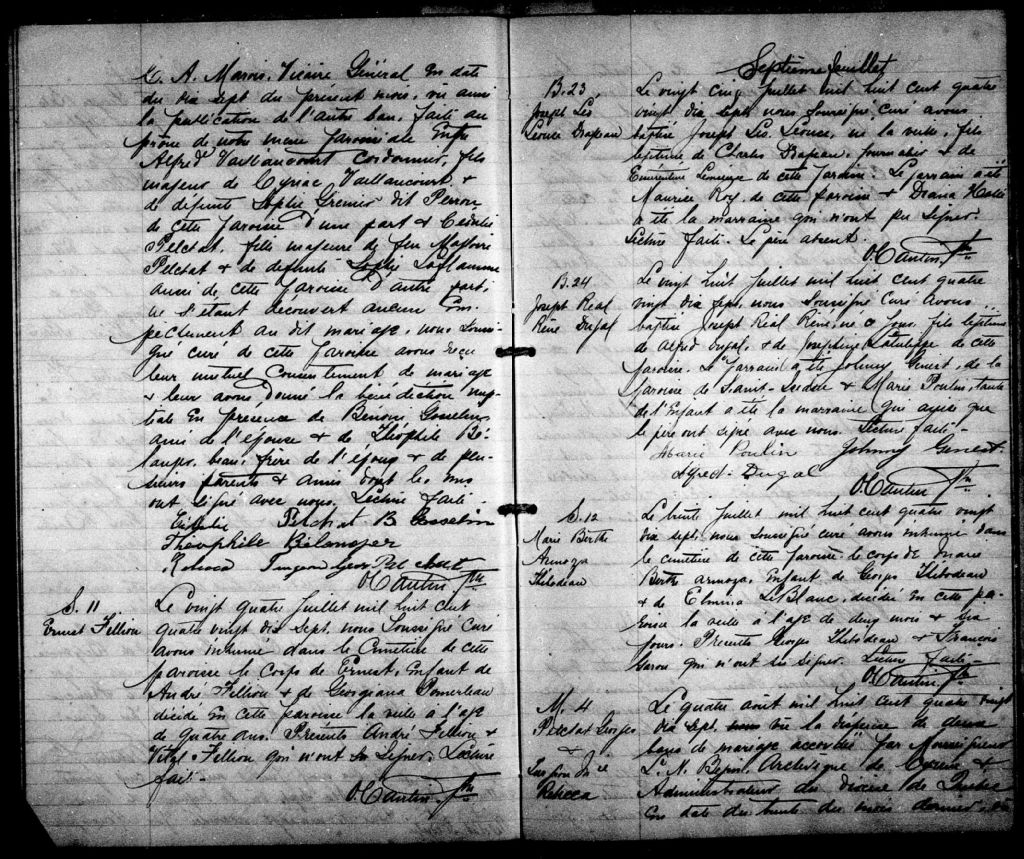 C. A. Marois, Vicaire Général en date
du dix sept du présent mois, vu aussi
la publication de l'autre ban, faite au
prône de notre messe paroissiale entre
Alfred Vaillancourt Cordonnier, fils
majeur de Cyriac Vaillancourt &
de défunte Sophie Grenier dit Perron
de cette paroisse d'une part & Cédulie
Pelchat, fille majeure de feu Magloire
Pelchat & de défunte Sophie Laflamme
aussi de cette paroisse d'autre part.
ne s'étant découvert aucun Em
pechement au dit mariage, nous soussi
gné curé de cette paroisse avons reçu
leur mutuel consentement de mariage
& leur avons donné la bénédiction nup
tiale en présence de Bénoni Gosselin
ami de l'épouse & de Théophile Bé
langer, beau-frère de l'époux & de plu
sieurs parents & amis dont les uns
ont signé avec nous. Lecture faite.
Pelchat B Gosselin
Théophile Bélanger
O Cantin Ptre
S. 11
Ernest Fillion
Le vingt quatre juillet mil huit cent
quatre vingt dix sept, nous soussigné curé
avons inhumé dans le cimetière de cette
paroisse le corps de Ernest, enfant de
André Fillion & de Georgiana Pomerleau
décédé en cette paroisse la veille à l'age
de quatre ans. Présents André Fillion &
Vital Fillion qui n'ont su signer. Lecture
faite.-
O Cantin Ptre
Septième feuillet
B. 23
Joseph Léo
Léonce Drapeau
Le vingt cinq juillet mil huit cent quatre
vingt dix sept, nous soussigné, curé avons
baptisé Joseph Léo Léonce, né la veille, fils
légitime de Charles Drapeau, journalier & de
Emérentienne de cette paroisse. Le parrain a été
Maurice Roy, de cette paroisse & Diana
a été la marraine qui n'ont pu signer.
Lecture faite. Le père absent.
O Cantin Ptre
B. 24
Joseph Réal
Réné Dugal
Le vingt huit juillet mil huit cent quatre
vingt dix sept, nous soussigné curé avons
baptisé Joseph Réal Réné, né ce jour, fils légitime
de Alfred Dugal, & de Joséphine Latulippe de cette
paroisse. Le parrain a été Johnny Genest, de la
paroisse de & Marie Poulin, tante
de l'enfant a été la marraine qui ainsi que
le père ont signé avec nous. Lecture faite -
Marie Poulin Johnny Genest
Alfred Dugal
O Cantin Ptre
S. 12
Marie Berthe
Armoza
Thibodeau
Le trente juillet mil huit cent quatre vingt
dix sept, nous soussigné curé avons inhumé dans
le cimetière de cette paroisse le corps de Marie
Berthe Armoza, enfant de Georges Thibodeau
& de Elmina LeBlanc, décédée en cette pa-
roisse la veille à l'age de deux mois & dix
jours. Présents Georges Thibodeau & François
qui n'ont su signer. Lecture faite -
O Cantin Ptre
M. 4
Pelchat Georges
&
Rebecca
Le quatre août mil huit cent quatre vingt
dix sept, vu la dispense de deux
bans de mariage accordée par Monseigneur
L. N. Bégin, Archevêque de Cyrène &
Administrateur du Diocèse de Québec
en date du trente du mois dernier